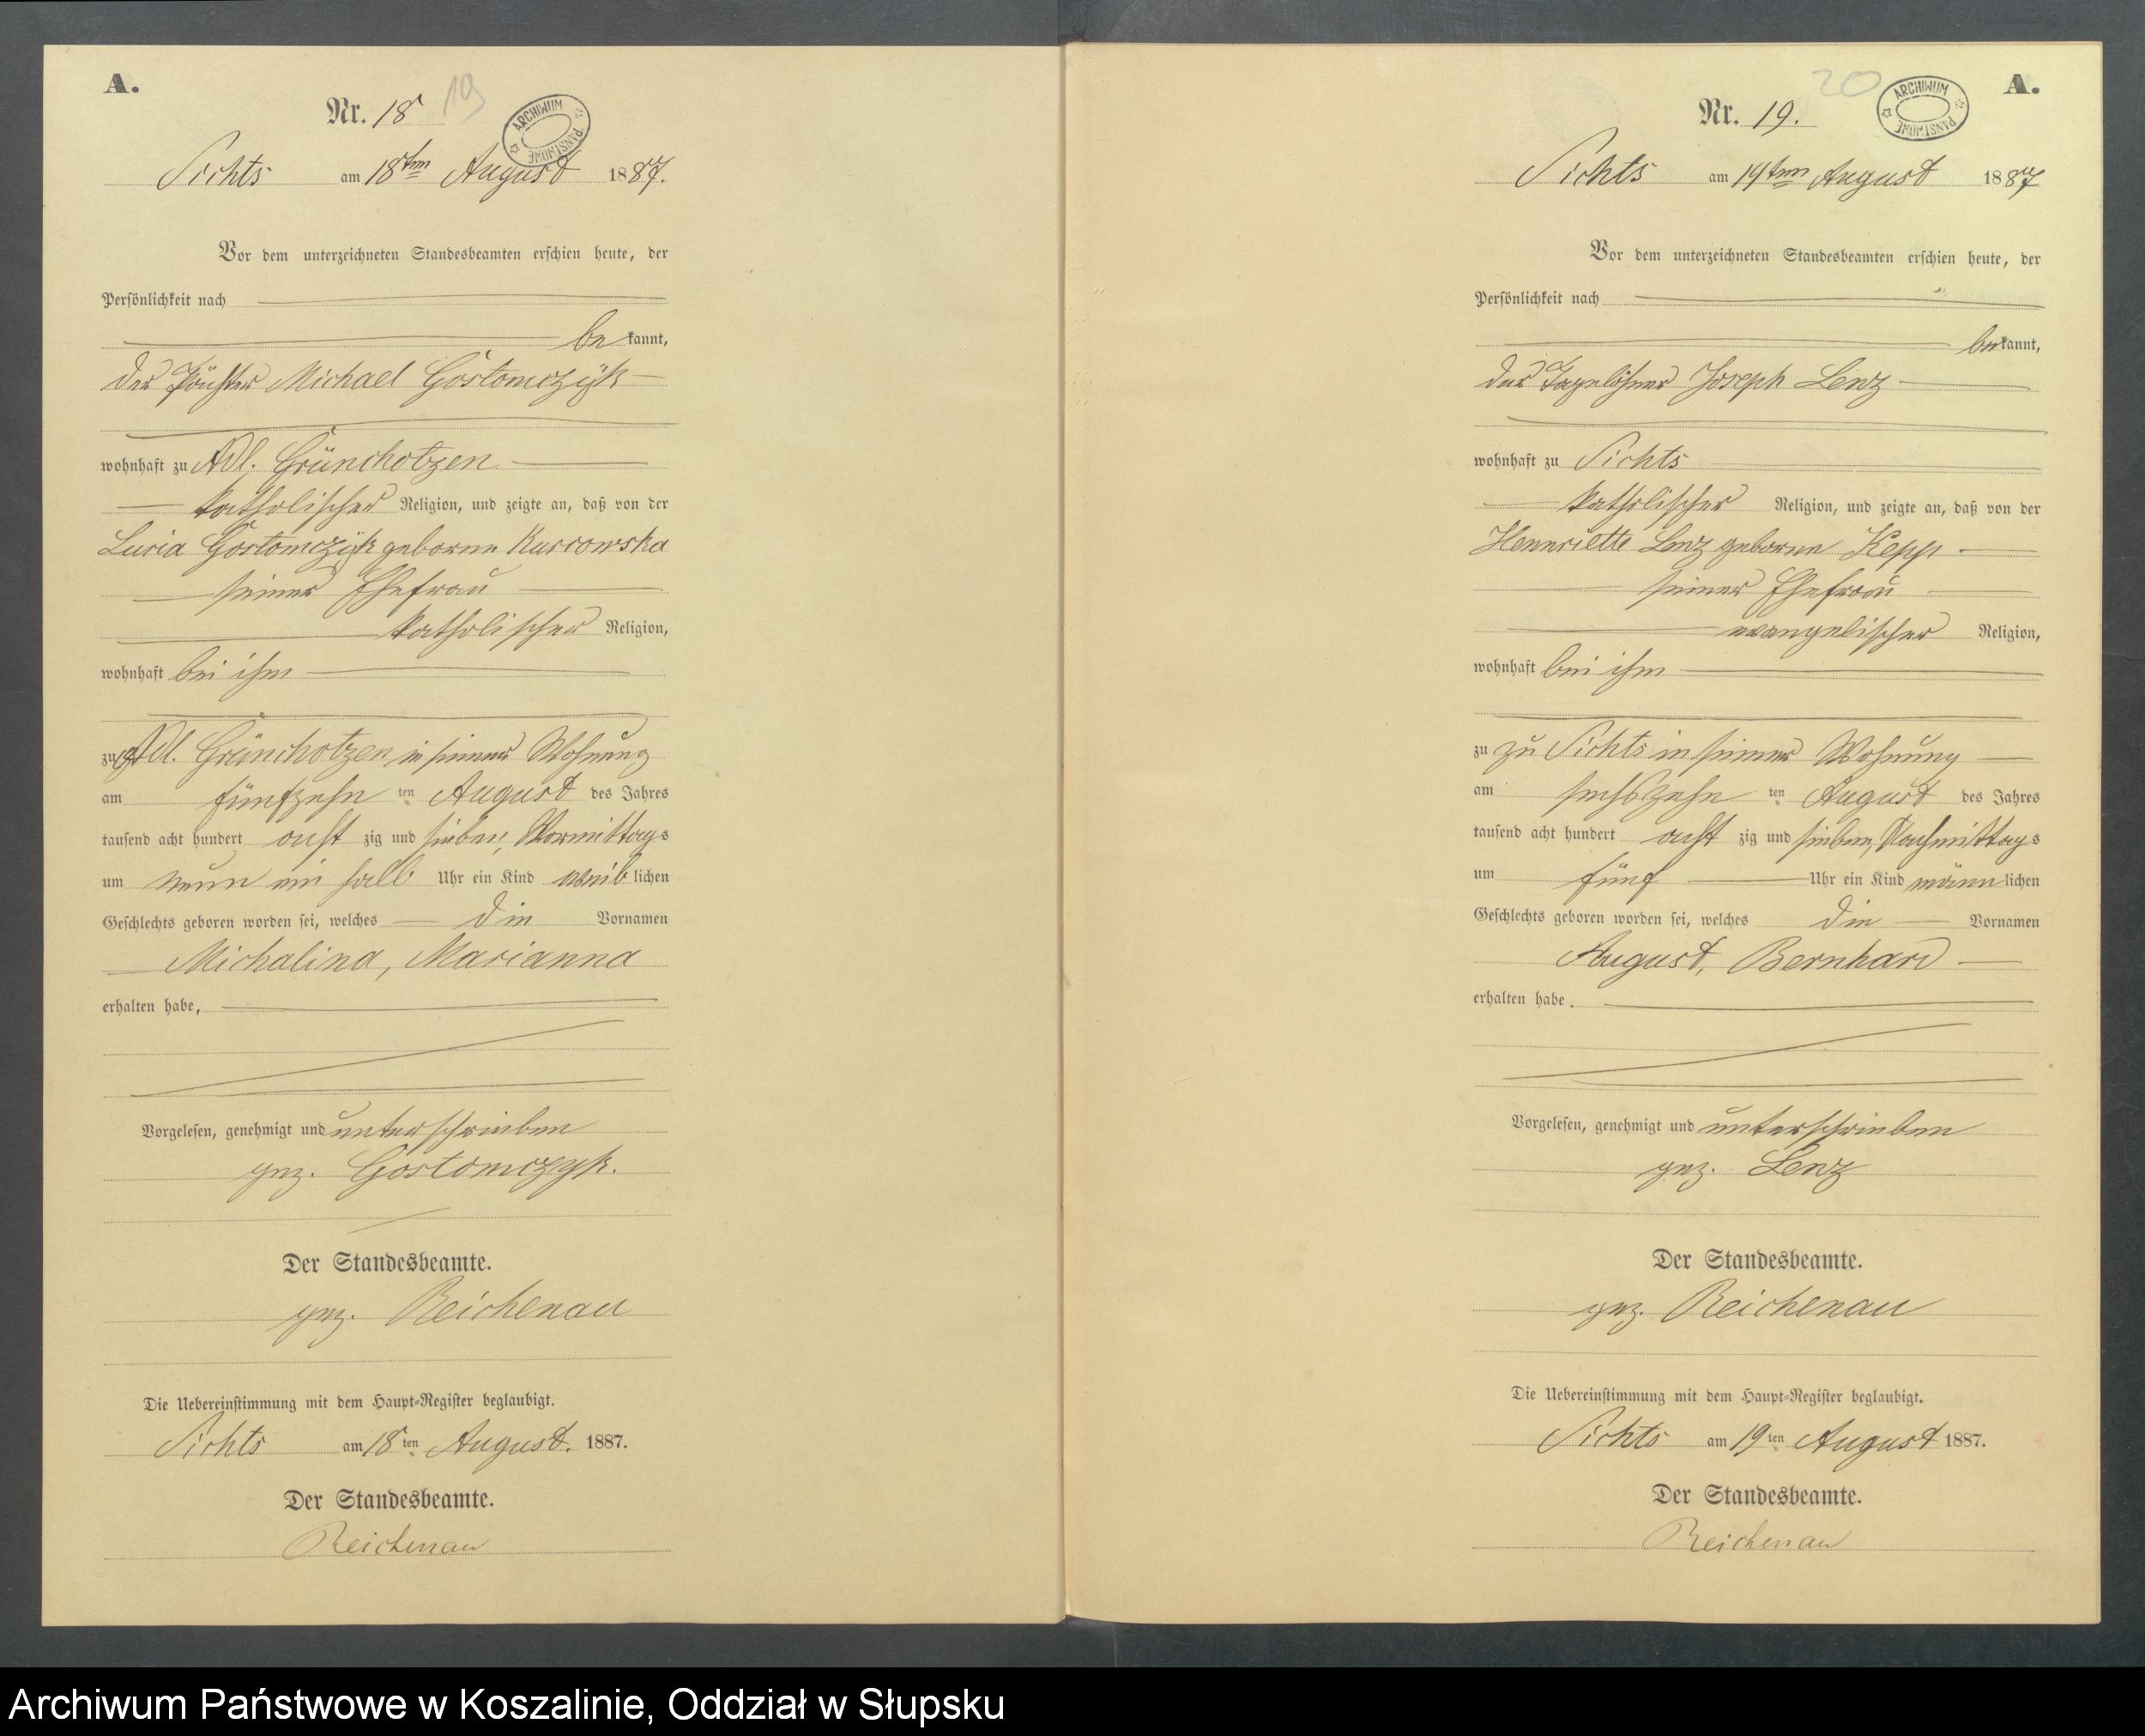 A.
Nr. 18
19
ARCHIWUM PAŃSTWOWE
Sichts am 18ten August 1887.
Vor dem unterzeichneten Standesbeamten erschien heute, der
Persönlichkeit nach
bekannt,
der Michael Gostomczyk
wohnhaft zu Adl. Grünchotzen
katholischer Religion, und zeigte an, daß von der
Lucia Gostomczyk geborne Kurcowska
seiner Ehefrau
katholischer Religion,
wohnhaft bei ihm
zu Adl. Grünchotzen in seiner Wohnung
am fünfzehn ten August des Jahres
tausend acht hundert acht zig und sieben, Vormittags
um neun ein halb Uhr ein Kind weiblichen
Geschlechts geboren worden sei, welches die Vornamen
Michalina, Marianna
erhalten habe,
Vorgelesen, genehmigt und unterschrieben
gez. Gostomczyk.
Der Standesbeamte.
gez. Reichenau
Die Uebereinstimmung mit dem Haupt-Register beglaubigt.
Sichts am 18ten August. 1887.
Der Standesbeamte.
Reichenau
A.
Nr. 19.
20
ARCHIWUM PAŃSTWOWE
Sichts am 19ten August 1887
Vor dem unterzeichneten Standesbeamten erschien heute, der
Persönlichkeit nach
bekannt,
der Tagelöhner Joseph Lenz
wohnhaft zu Sichts
katholischer Religion, und zeigte an, daß von der
Hennriette Lenz geborne Kepp
seiner Ehefrau
evangelischer Religion,
wohnhaft bei ihm
zu zu Sichts in seiner Wohnung
am sechszehn ten August des Jahres
tausend acht hundert acht zig und sieben, Nachmittags
um fünf Uhr ein Kind männlichen
Geschlechts geboren worden sei, welches die Vornamen
August, Bernhard
erhalten habe.
Vorgelesen, genehmigt und unterschrieben
gez. Lenz
Der Standesbeamte.
gez. Reichenau
Die Uebereinstimmung mit dem Haupt-Register beglaubigt.
Sichts am 19ten August 1887.
Der Standesbeamte.
Reichenau
Archiwum Państwowe w Koszalinie, Oddział w Słupsku